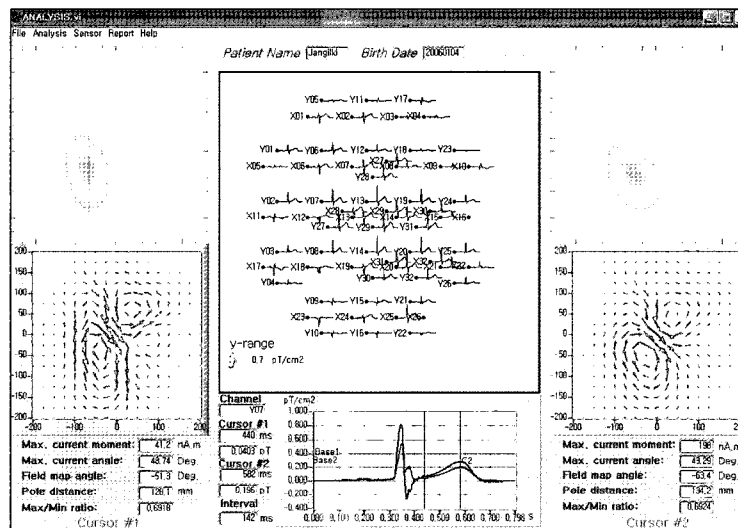 ANALYSIS.vi
File Analysis Sensor Report Help
Patient Name Jangilki Birth Date 20060104
Y05 Y11 Y17
X01 X02 X03 X04
Y01 Y06 Y12 Y18 Y23
X27
X05 X06 X07 X08 X09 X10
Y28
Y02 Y07 Y13 Y19 Y24
X28 X29 X30
X11 X12 X13 X14 X15 X16
Y27 Y29 Y31
Y03 Y08 Y14 Y20 Y25
X31 X32
X17 X18 X19 X20 X21 X22
Y04 Y30 Y32 Y26
Y09 Y15 Y21
X23 X24 X25 X26
Y10 Y16 Y22
y-range
0.7 pT/cm2
200
150
100
50
0
-50
-100
-150
-200
-200 -100 0 100 200
Max. current moment: 41,2 nA,m
Max. current angle: 48,74 Deg.
Field map angle: -51,3 Deg.
Pole distance: 128,1 mm
Max/Min ratio: 0,6918
Cursor #1
Channel
Y07
Cursor #1
440 ms
0,0403 pT
Cursor #2
582 ms
0,196 pT
Interval
142 ms
pT/cm2
1.000
0.800
0.600
0.400
0.200
0.000
-0.200
-0.400
Base1
Base2
C2
0.200 0.300 0.400 0.500 0.600 0.700 0.798 S
200
150
100
50
0
-50
-100
-150
-200
-200 -100 0 100 200
Max. current moment: 196 nA,m
Max. current angle: 43,29 Deg.
Field map angle: -63,4 Deg.
Pole distance: 134,2 mm
Max/Min ratio: 0,6924
Cursor #2